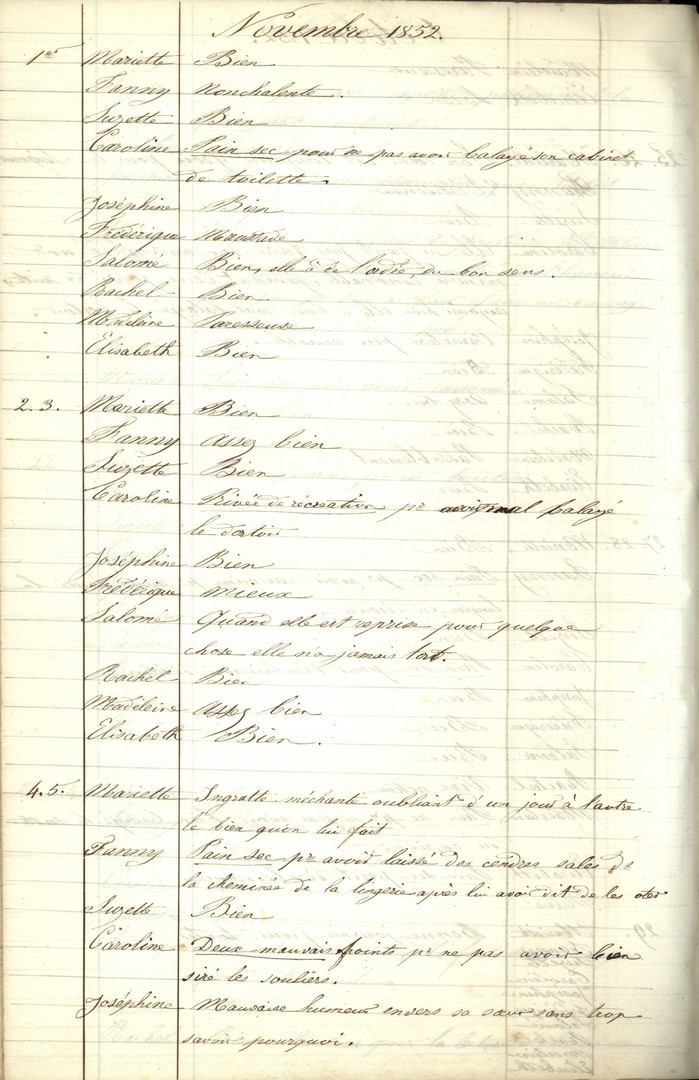 Novembre 1852.
1er Mariette Bien
Fanny Nonchalente.
Suzette Bien
Caroline Pain sec pour ne pas avoir balayé son cabinet
de toilette.
Joséphine Bien
Frédérique Moustade
Salomé Bien, elle à de l'ordre, du bon sens.
Rachel Bien
Madeleine Paresseuse
Elisabeth Bien
2.3. Mariette Bien
Fanny Assez bien
Suzette Bien
Caroline Privée de récréation pr avoir mal balayé
le dortoir
Joséphine Bien
Frédérique Mieux
Salomé Quand elle est reprise pour quelque
chose elle n'a jamais tort.
Rachel Bien
Madéleine Assez bien
Elisabeth Bien.
4.5. Mariette Ingratte méchante oubliant d'un jour à l'autre
le bien qu'on lui fait
Fanny Pain sec pr avoir laissé des cendres sales de
la cheminée de la lingerie après lui avoir dit de les oter
Suzette Bien
Caroline Deux mauvais points pr ne pas avoir bien
siré les souliers.
Joséphine Mauvaise humeur envers sa sœur sans trop
savoir pourquoi.